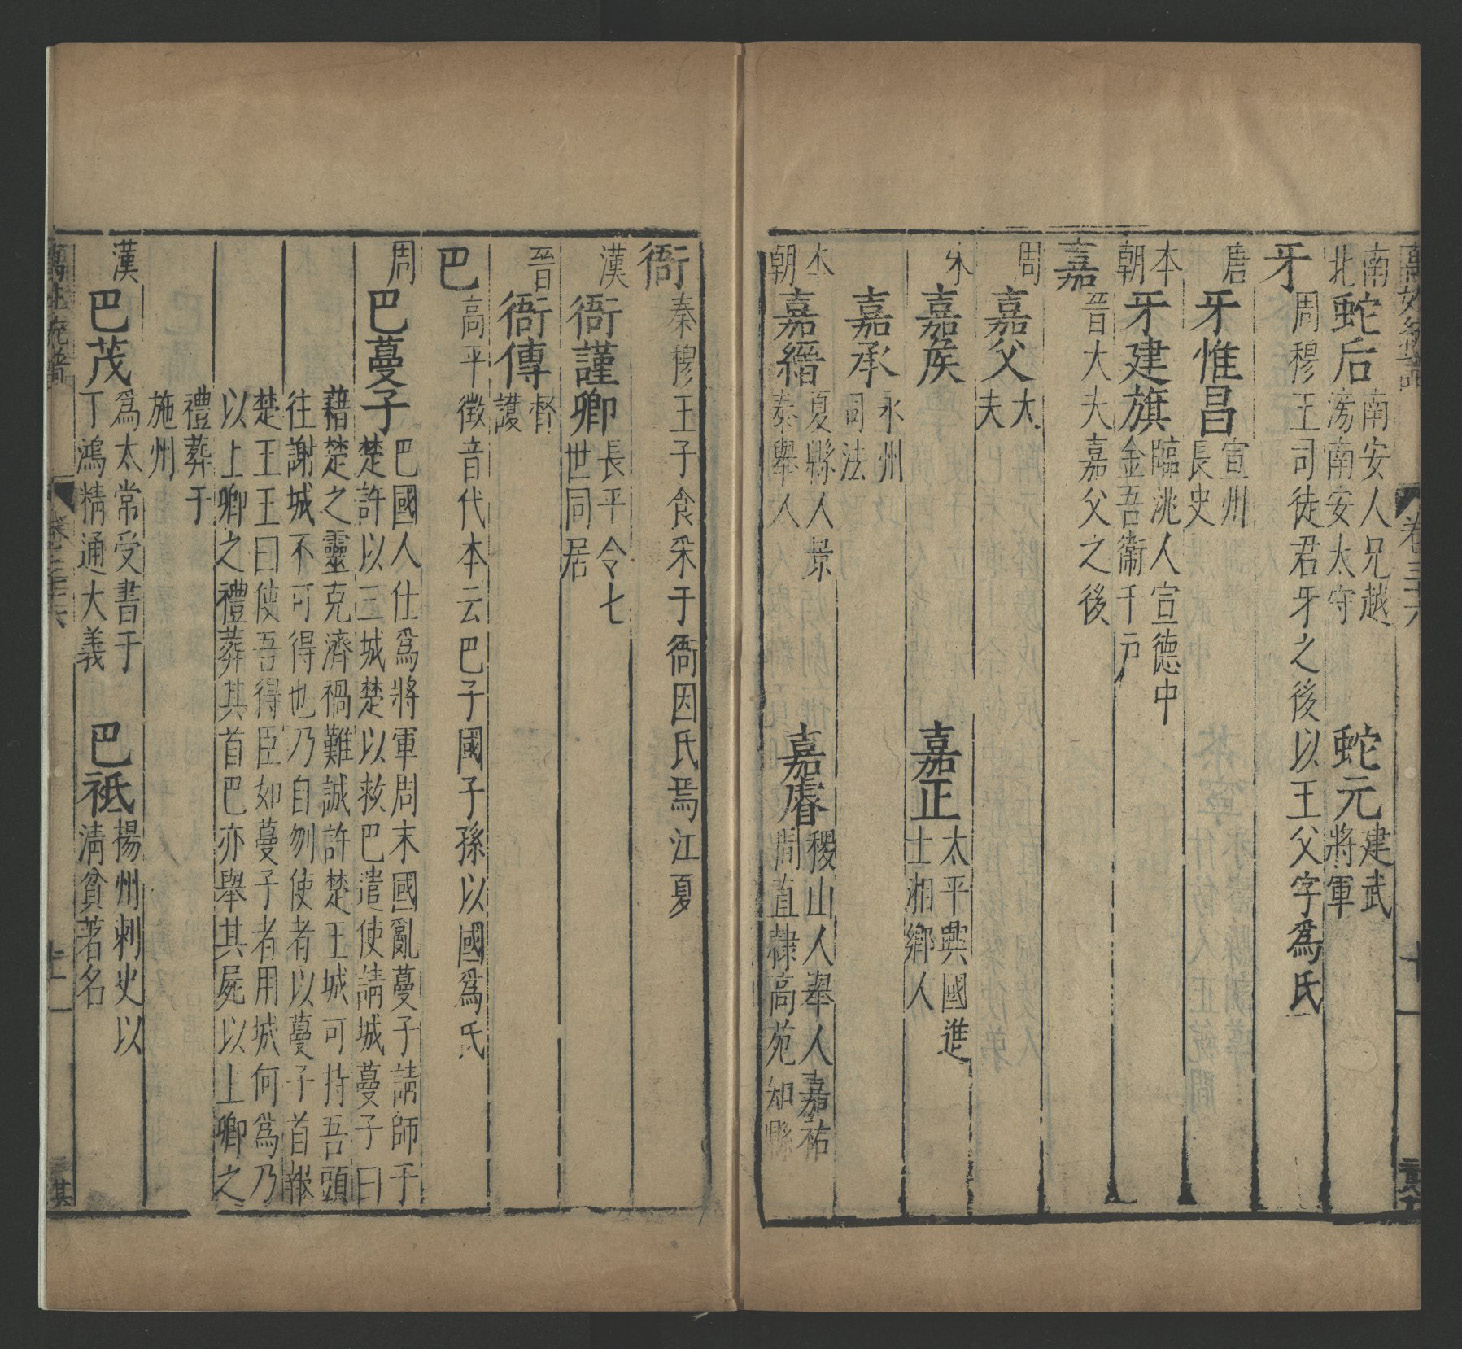 萬姓統譜 卷三十六 十一
南北 蛇后 南安人兄越滂南安太守 蛇元 建武將軍
牙 周穆王司徒君牙之後以王父字爲氏
唐 牙惟昌 宣州長史
本朝 牙建旗 臨洮人宣德中金吾衞千戶
嘉 晉大夫嘉父之後
周 嘉父 大夫
宋 嘉矦 嘉正 太平興國進士湘鄉人
嘉承 永州司法
本朝 嘉縉 夏縣人景泰舉人 嘉睿 稷山人舉人嘉祐間直隸高苑知縣
衙 秦穆王子食采于衙因氏焉江夏
漢 衙謹卿 長平令七世同居
晉 衙傳 督護
巴 高平徵音代本云巴子國子孫以國爲氏
周 巴蔓子 巴國人仕爲將軍周末國亂蔓子請師于楚許以三城楚以救巴遣使請城蔓子曰
藉楚之靈克濟禍難誠許楚王城可持吾頭往謝城不可得也乃自刎使者以蔓子首報
楚王王曰使吾得臣如蔓子者用城何爲乃以上卿之禮葬其首巴亦舉其屍以上卿之
禮葬于施州
漢 巴茂 爲太常受書于丁鴻精通大義 巴祗 揚州刺史以清貧著名
萬姓統譜 卷三十六 十一